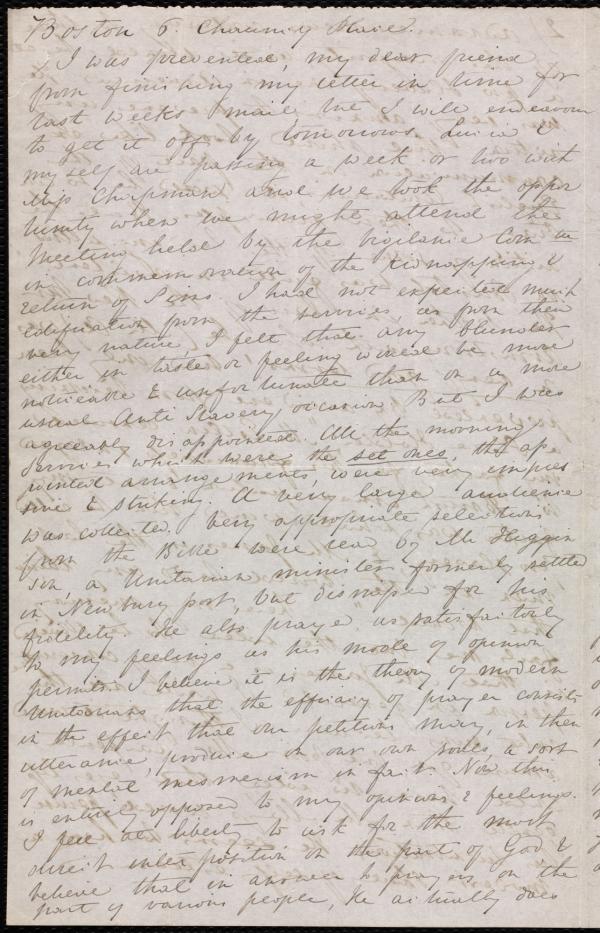 Boston 6. Chauncy Place.
I was prevented, my dear friend
from finishing my letter in time for
last weeks mail but I will endeavour
to get it off by tomorrows. Lucia &
myself are passing a week or two with
Mrs Chapman and we took the oppor
tunity when we might attend the
Meeting held by the Vigilance Com in
in commemoration of the kidnapping &
return of Sims. I had not expected much
edification from the services, as from their
very nature, I felt that any blunder
either in taste or feeling would be more
noticeable & unfortunate than on a more
usual Anti Slavery occasion But I was
agreeably disappointed. All the morning
services which were the set ones, the ap
pointed arrangements, were very impres
sive & striking. A very large audience
was collected. Very appropriate selections
from the Bible were read by Mr Higgin
son, a Unitarian minister formerly settled
in Newburyport, but dismissed for his
fidelity. He also prayed as satisfactorily
to my feelings as his mode of opinion
permits. I believe it is the theory of modern
Unitarians that the efficacy of prayer consists
in the effect that our petitions may, in their
utterance, produce on our own souls, a sort
of mental mesmerism in fact. Now this
is entirely opposed to my opinions & feelings.
I feel at liberty to ask for the most
direct interposition on the part of God &
believe that in answer to prayers on the
part of various people, He actually does